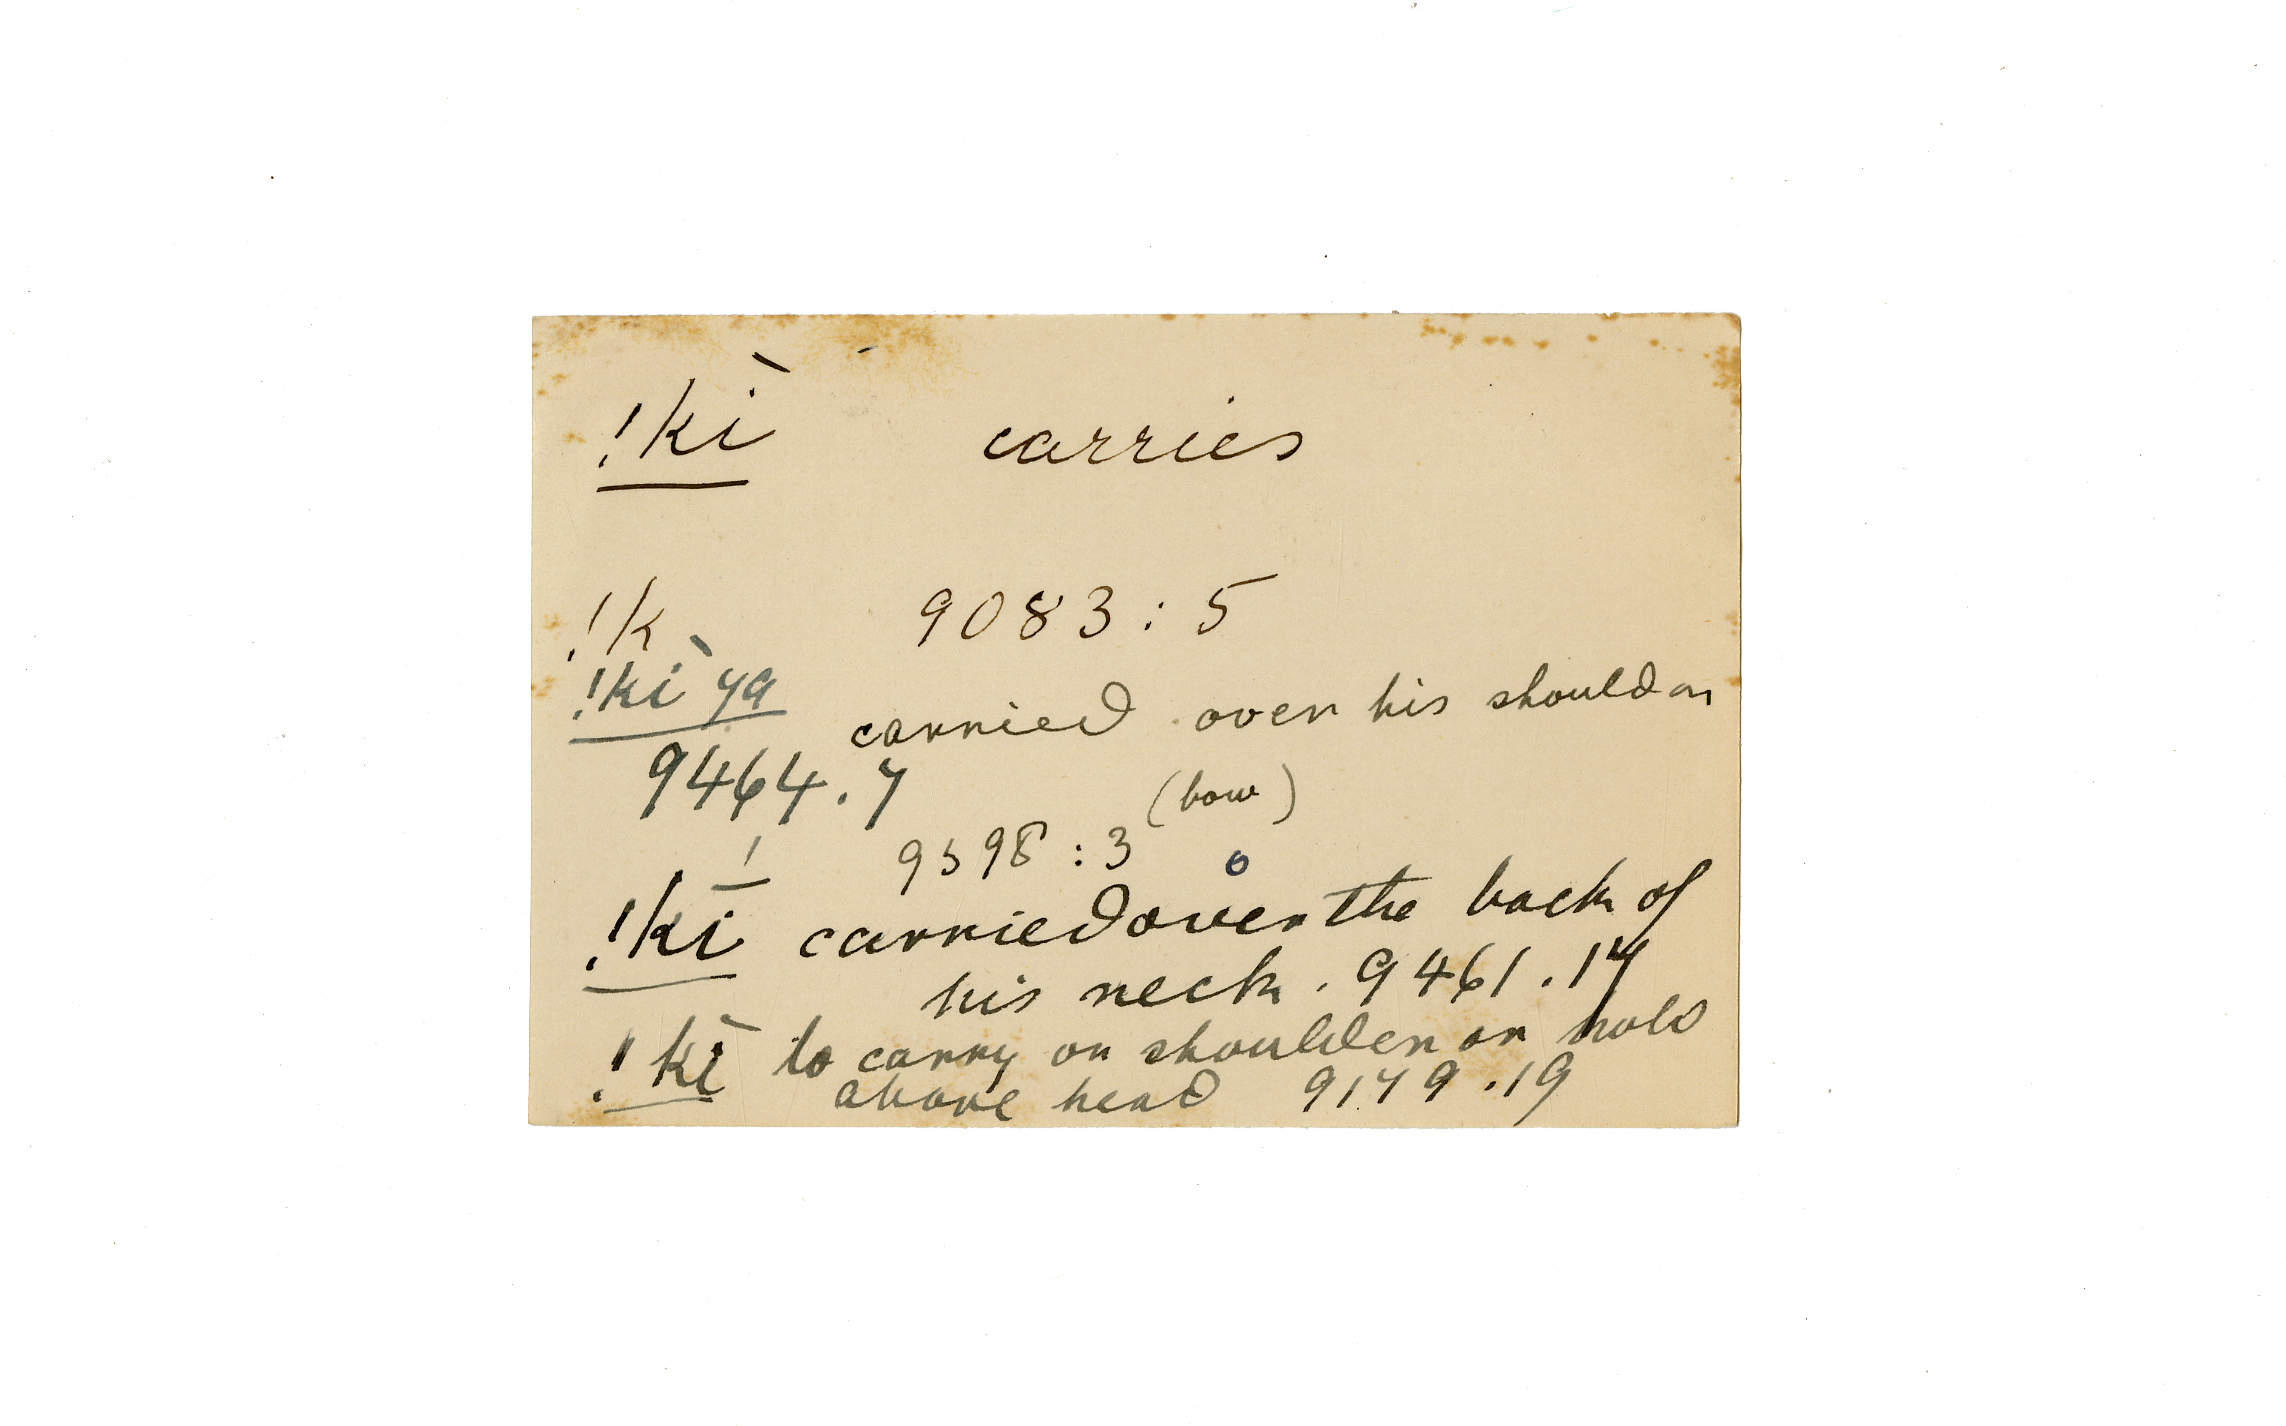 !kì carries
!k 9083:5
!kì ya carried over his shoulder
9464.7 (bow)
9398:3
!kī́ carried over the back of
his neck. 9461.17
!kī to carry on shoulder or hold
above head 9179.19